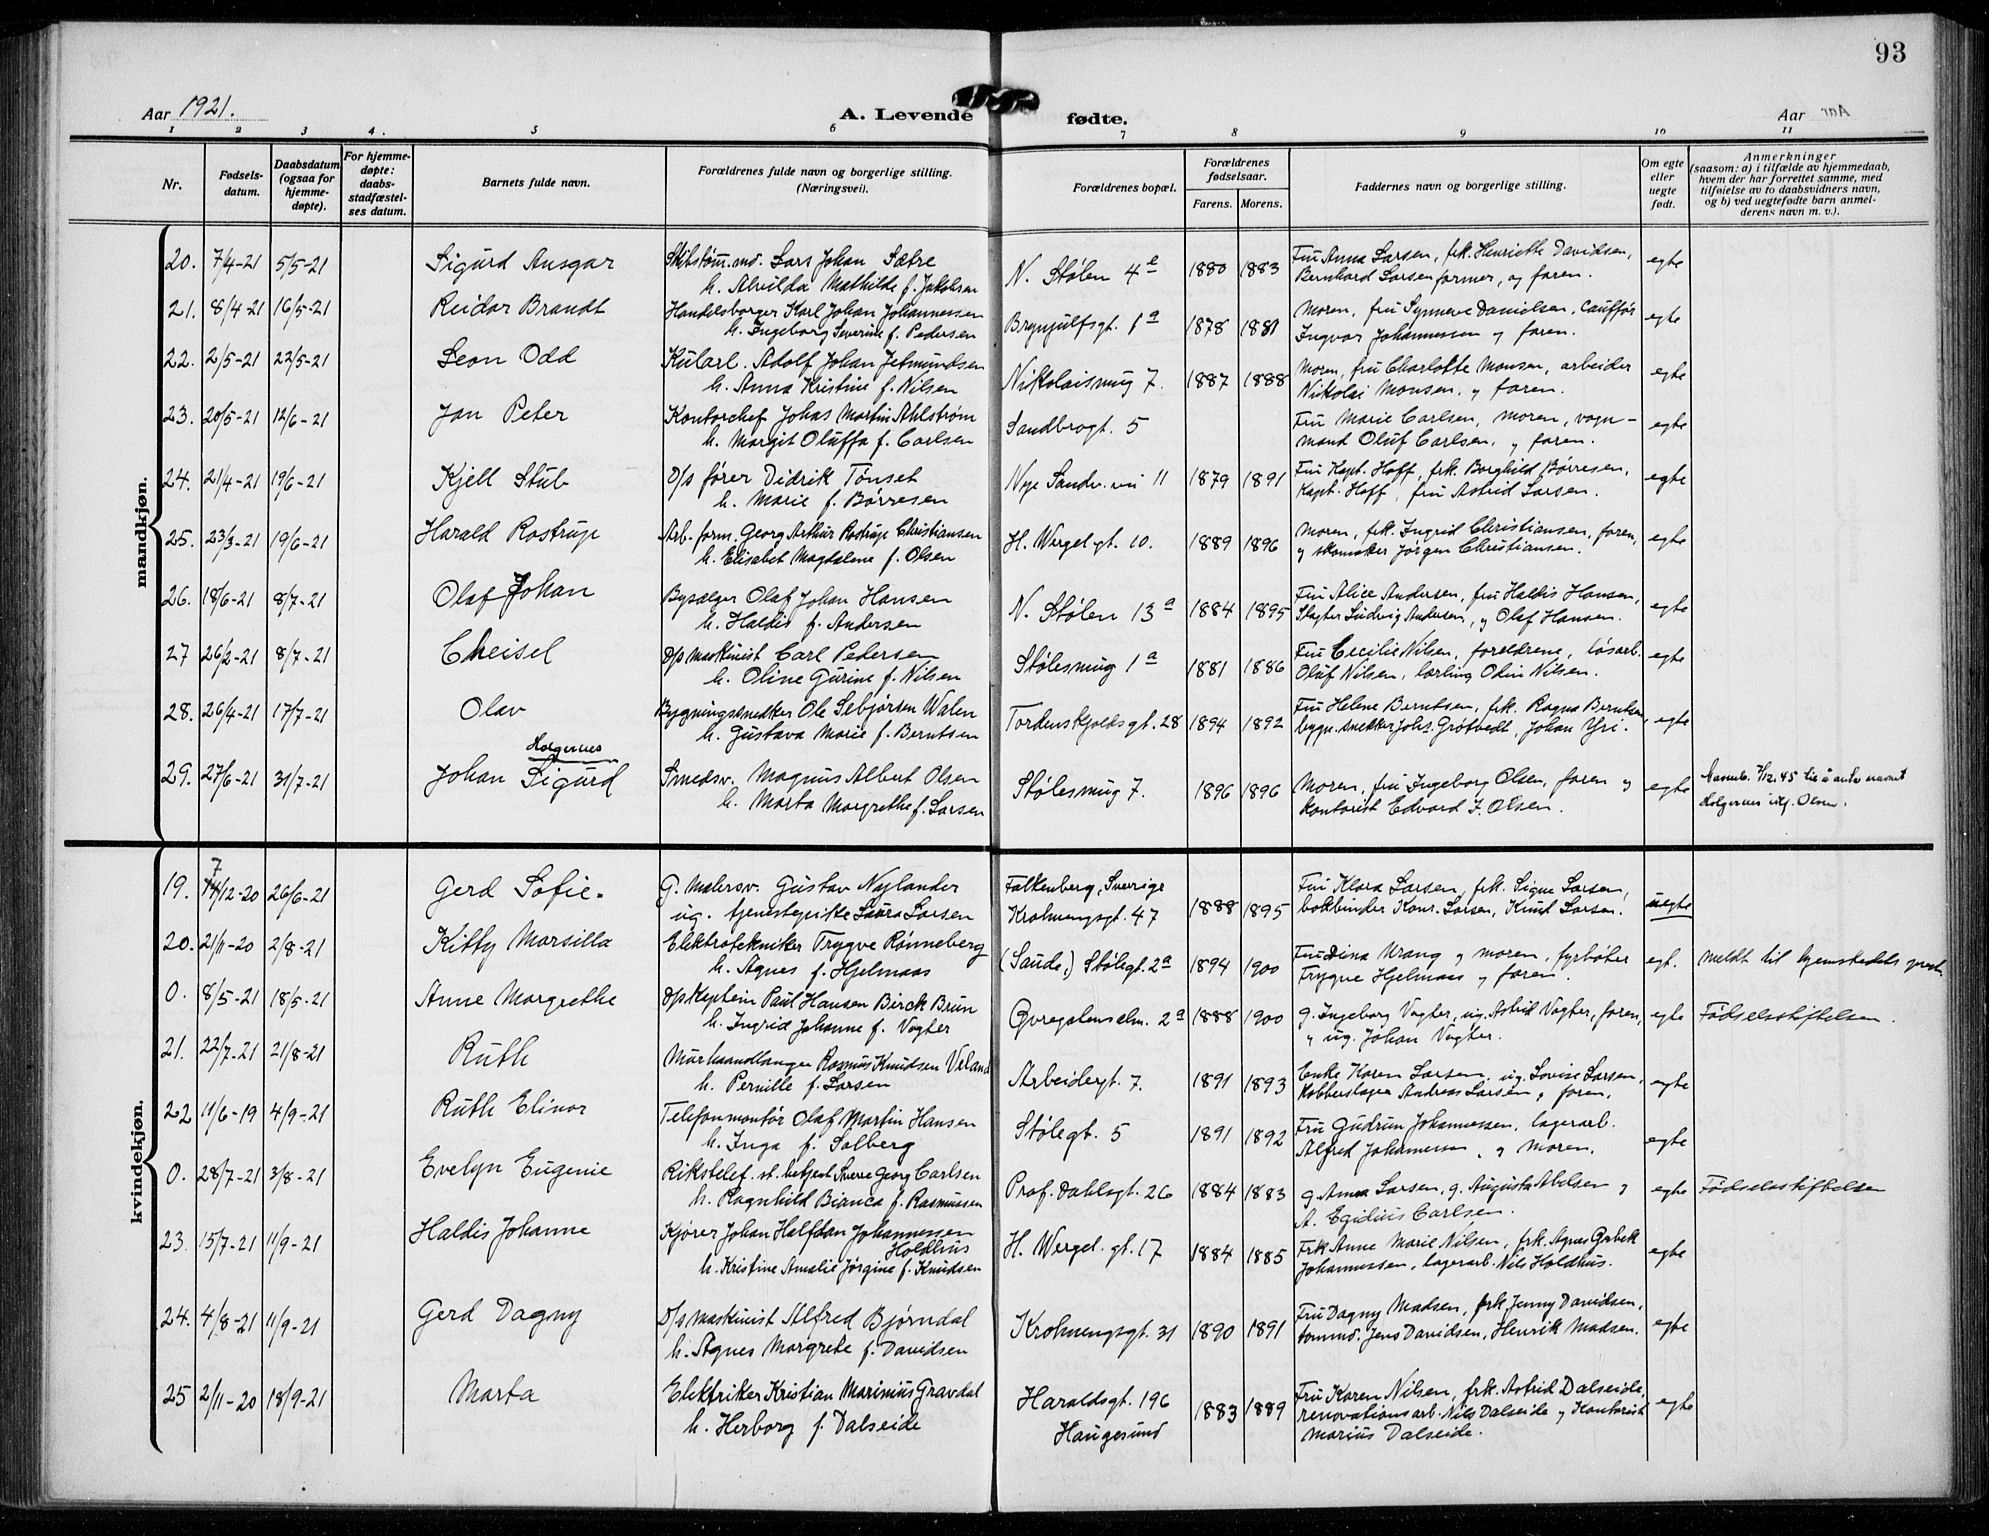 93
Aar 1921.
A. Levende fødte.
Aar
1 2 3 4. 5 6 7 8 9 10 11
Nr.
Fødsels-
datum.
Daabsdatum
(ogsaa for
hjemme-
døpte).
For hjemme-
døpte:
daabs-
stadfæstel-
ses datum.
Barnets fulde navn.
Forældrenes fulde navn og borgerlige stilling.
(Næringsvei).
Forældrenes bopæl.
Forældrenes
fødselsaar.
Farens. Morens.
Faddernes navn og borgerlige stilling.
Om egte
eller
uegte
født.
Anmerkninger
(saasom: a) i tilfælde av hjemmedaab,
hvem der har forrettet samme, med
tilføielse av to daabsvidners navn,
og b) ved uegtefødte barn anmel-
derens navn m. v.).
mandkjøn.
20. 7/4-21 5/5-21 Sigurd Ansgar Lars Johan Sætre N. Stølen 4e 1880 1883 Fru Anna Larsen, frk. Henriette Davidsen, egte
h. Alvilda Mathilde f. Jakobsen Bernhard Larsen former, og faren.
21. 8/4-21 16/5-21 Reidar Brandt Handelsborger Karl Johan Johannessen Brynjulfsgt. 1a 1878 1881 Moren, fru Synneve Danielsen, egte
h. Ingeborg Severine f. Pedersen Ingvar Johannessen og faren.
22. 2/5-21 22/5-21 Leon Odd Kularb. Adolf Johan Jetmundsen Nikolaismug 7. 1887 1888 Moren, fru Charlotte Monsen, arbeider egte
h. Anna Kristine f. Nilsen Nikolai Monsen, y faren.
23. 20/5-21 12/6-21 Jan Peter Kontorchef Johas Martin Ahlstrøm Sandbrogt. 5 Fru Marie Carlsen, moren, vogn- egte
h. Margit Oluffa f. Carlsen mand Oluf Carlsen, y faren.
24. 21/4-21 19/6-21 Kjell Stub D/s fører Didrik Tønset Nye Sandv. vei 11 1879 1891 Fru Kapt. Hoff, frk. Borghild Børresen, egte
h. Marie f. Børresen Kapt. Hoff, fru Astrid Larsen.
25. 23/3-21 19/6-21 Harald Rostrup Arb. form. Georg Arthur Rostrup Christiansen H. Wergel. gt. 10. 1889 1896 Moren, frk. Ingrid Christiansen, faren, egte
h. Elisabet Magdalene f. Olsen y skomaker Jørgen Christiansen.
26. 18/6-21 8/7-21 Olaf Johan Bysælger Olaf Johan Hansen N. Stølen 13a 1884 1895 Fru Alice Andersen, fru Haldis Hansen, egte
h. Haldis f. Andersen Slagter Ludvig Andersen, y Olaf Hansen.
27 26/2-21 8/7-21 Cheisel D/s maskinist Carl Pedersen Stølesmug 1a 1881 1886 Fru Cecilie Nilsen, foreldrene, løsarb. egte
h. Oline Gurine f. Nilsen Oluf Nilsen, lærling Odin Nilsen.
28. 26/4-21 17/7-21 Olav Bygningssnedker Ole Sebjørsen Walen Tordenskjoldsgt. 28 1894 1892 Fru Helene Berntsen, frk. Ragna Berntsen, egte
h. Gustava Marie f. Berntsen bygn. snekker Johs. Grøtvedt, Johan Yri.
Holgernes
29. 27/6-21 31/7-21 Johan Sigurd Smedsv. Magnus Albert Olsen Stølesmug 7. 1896 1896 Moren, fru Ingeborg Olsen, faren y egte 7/12.45 til å anta navnet
h. Marta Margrethe f. Larsen kontorist Edvard J. Olsen. Holgernes Olsen.
kvindekjøn.
19. 7/12-20 26/6-21 Gerd Sofie. G. Malersv. Gustav Naylander Falkenberg, Sverige 1888 1895 Fru Klara Larsen, frk. Signe Larsen, uegte
ug. tjenestepike Laura Larsen Krohnengsgt. 47 bokbinder Konr. Larsen, Knut Larsen.
20. 21/11-20 2/8-21 Kitty Marsilla Elektrotekniker Trygve Rønneberg (Saude,) Stølegt. 2a 1894 1900 Fru Dina Urang y moren, fyrbøter egt. Meldt til hjemstedets prest.
h. Agnes f. Hjelmaas Trygve Hjelmaas y faren.
0. 8/5-21 18/5-21 Anne Margrethe D/s Kaptein Paul Hansen Birck Brun Øvregatens alm. 2a 1888 1900 g. Ingeborg Vogter, ug. Astrid Vogter, faren, egte Fødselsstiftelsen.
h. Ingrid Johanne f. Vogter y ug. Johan Vogter.
21. 22/7-21 21/8-21 Ruth Murhaandlanger Rasmus Knudsen Arbeidergt. 7. 1891 1893 Enke Karen Larsen, ug. Lovise Larsen, egte
h. Pernille f. Larsen Kobberslager Andreas Larsen y faren.
22 11/6-19 4/9-21 Ruth Elinor Telefonmontør Olaf Martin Hansen Stølegt. 5 1891 1892 Fru Gudrun Johannessen, lagerarb. egte
h. Inga f. Solberg Alfred Johannessen, y moren.
0. 28/7-21 3/8-21 Evelyn Eugenie Rikstelef. st. betjent Sverre Georg Carlsen Prof. Dahlsgt. 26 1884 1883 g. Anna Larsen, g. Augusta Abelsen y egte Fødselsstiftelsen
h. Ragnhild Bianca f. Rasmussen A. Egidius Carlsen.
23. 15/7-21 11/9-21 Haldis Johanne Kjører Johan Halfdan Johannessen H. Wergel. gt. 17 1884 1885 Frk Anne Marie Nilsen, frk. Agnes Gabek egte
Holdhus
h. Kristine Amalie Jørgine f. Knudsen Johannessen, lagerarb. Nils Holdhus.
24. 4/8-21 11/9-21 Gerd Dagny D/s maskinist Alfred Bjørndal Krohnengsgt. 31 1890 1891 Fru Dagny Madsen, frk Jenny Davidsen, egte
h. Agnes Margrete f. Davidsen tømmd. Jens Davidsen, Henrik Madsen.
25 2/11-20 18/9-21 Marta Elektriker Kristian Marinius Gravdal Haraldsgt. 196 1883 1889 Fru Karen Nilsen, frk. Astrid Dalseide, egte
h. Herborg f. Dalseide Haugesund renovationsarb. Nils Dalseide y Kontorist
Marius Dalseide.